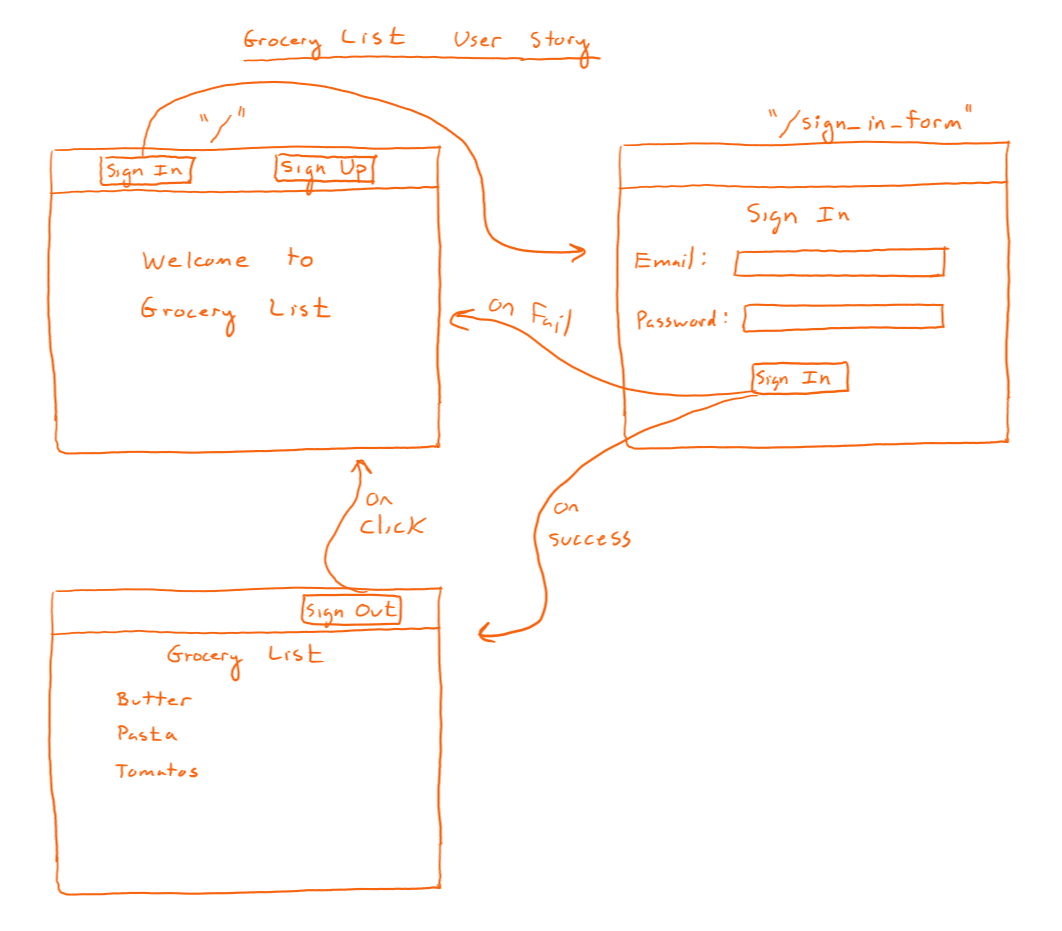 Grocery List User Story
"/"
Sign In
Sign Up
Welcome to
Grocery List
"/sign_in_form"
Sign In
Email:
Password:
Sign In
on Fail
on
success
on
click
Sign Out
Grocery List
Butter
Pasta
Tomatos